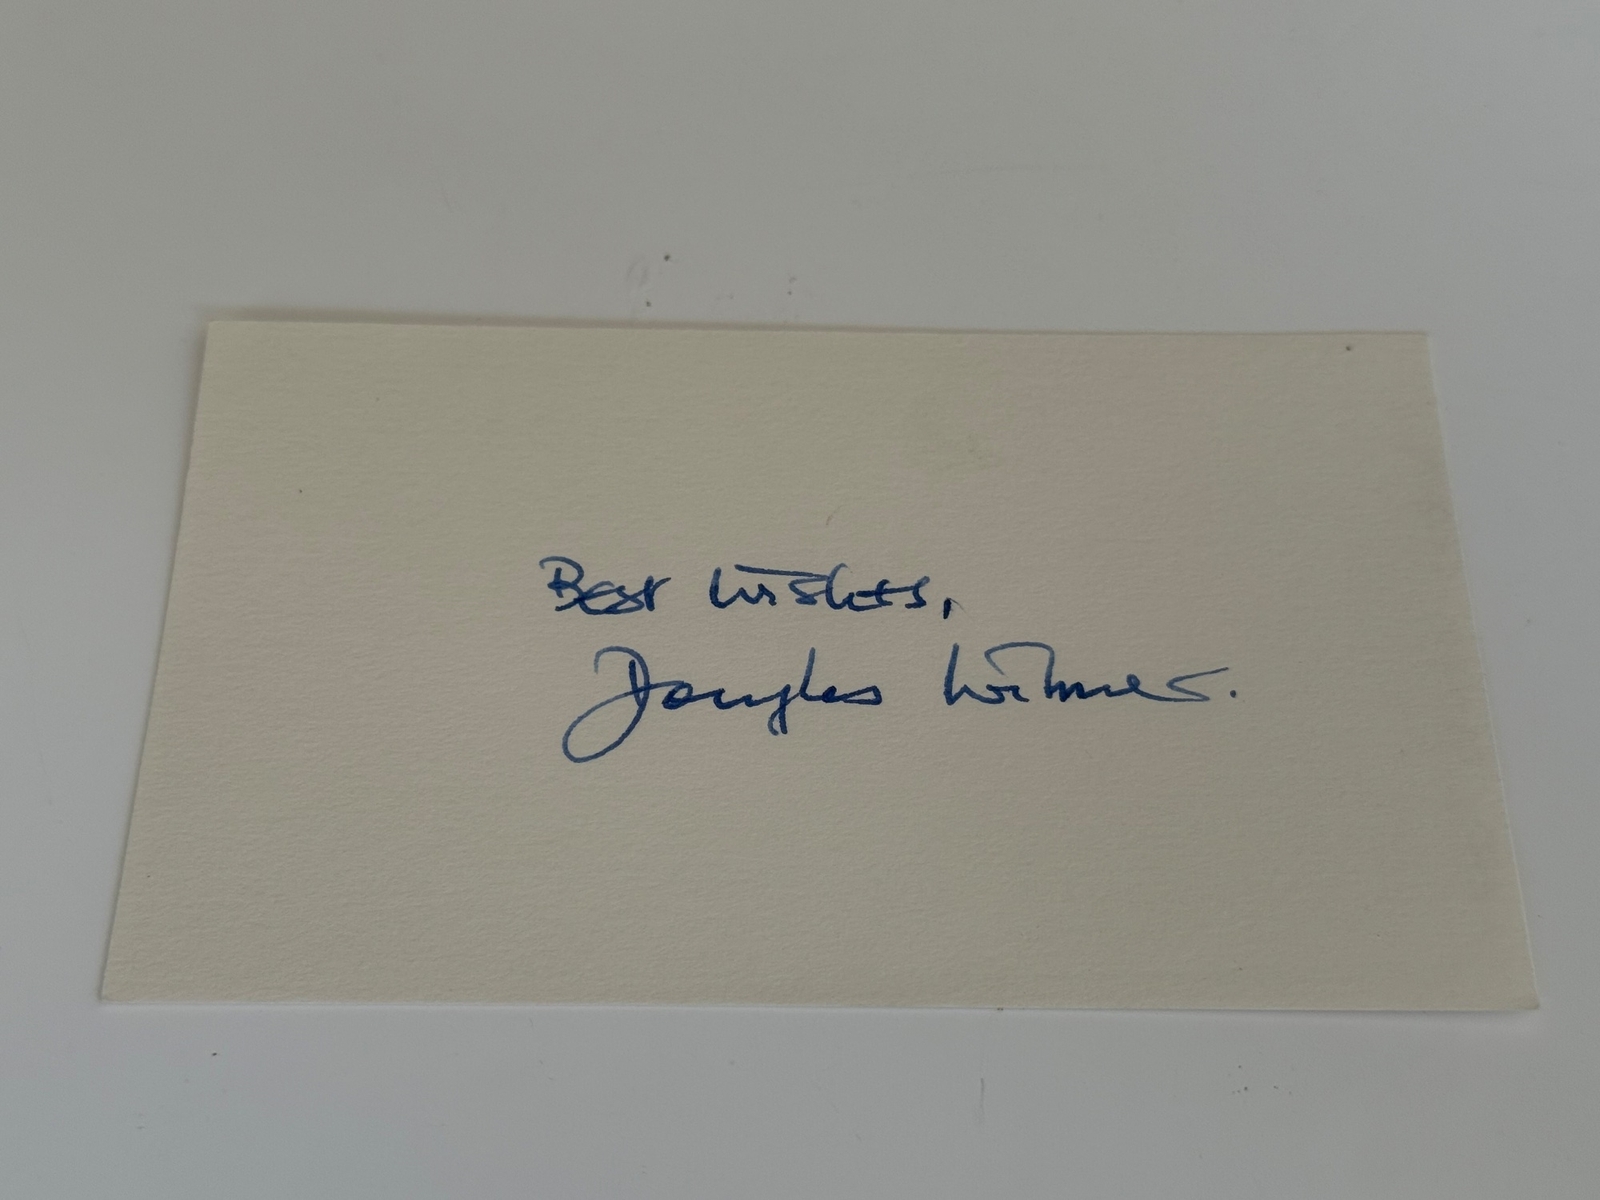 Best Wishes,
Douglas Wilmer.